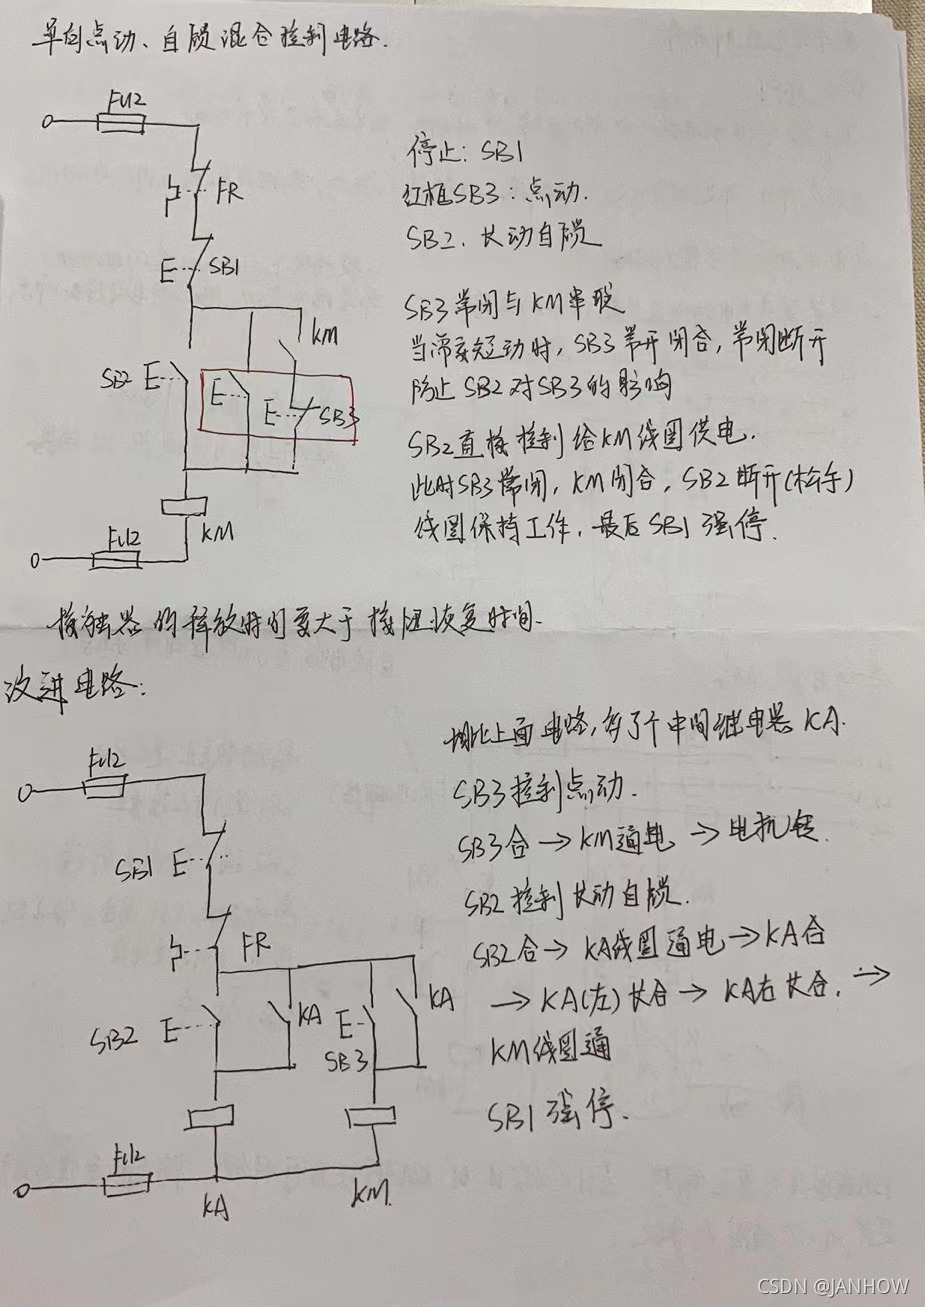 单向点动、自锁混合控制电路.
FU2
FR
SB1
KM
SB2
SB3
KM
FU2
停止: SB1
红框SB3: 点动.
SB2. 长动自锁
SB3常闭与KM串联
当需要短动时, SB3常开闭合, 常闭断开
防止SB2对SB3的影响
SB2直接控制给KM线圈供电.
此时SB3常闭, KM闭合, SB2断开(松手)
线圈保持工作, 最后SB1强停.
接触器的释放时间要大于按钮恢复时间.
改进电路:
FU2
SB1
FR
KA
KA
SB2
SB3
FU2
KA
KM.
相比上面电路, 多了个中间继电器KA.
SB3控制点动.
SB3合→KM通电→电机转.
SB2控制长动自锁.
SB2合→KA线圈通电→KA合
→KA(左)长合→KA右长合. →
KM线圈通
SB1强停.
CSDN @JANHOW